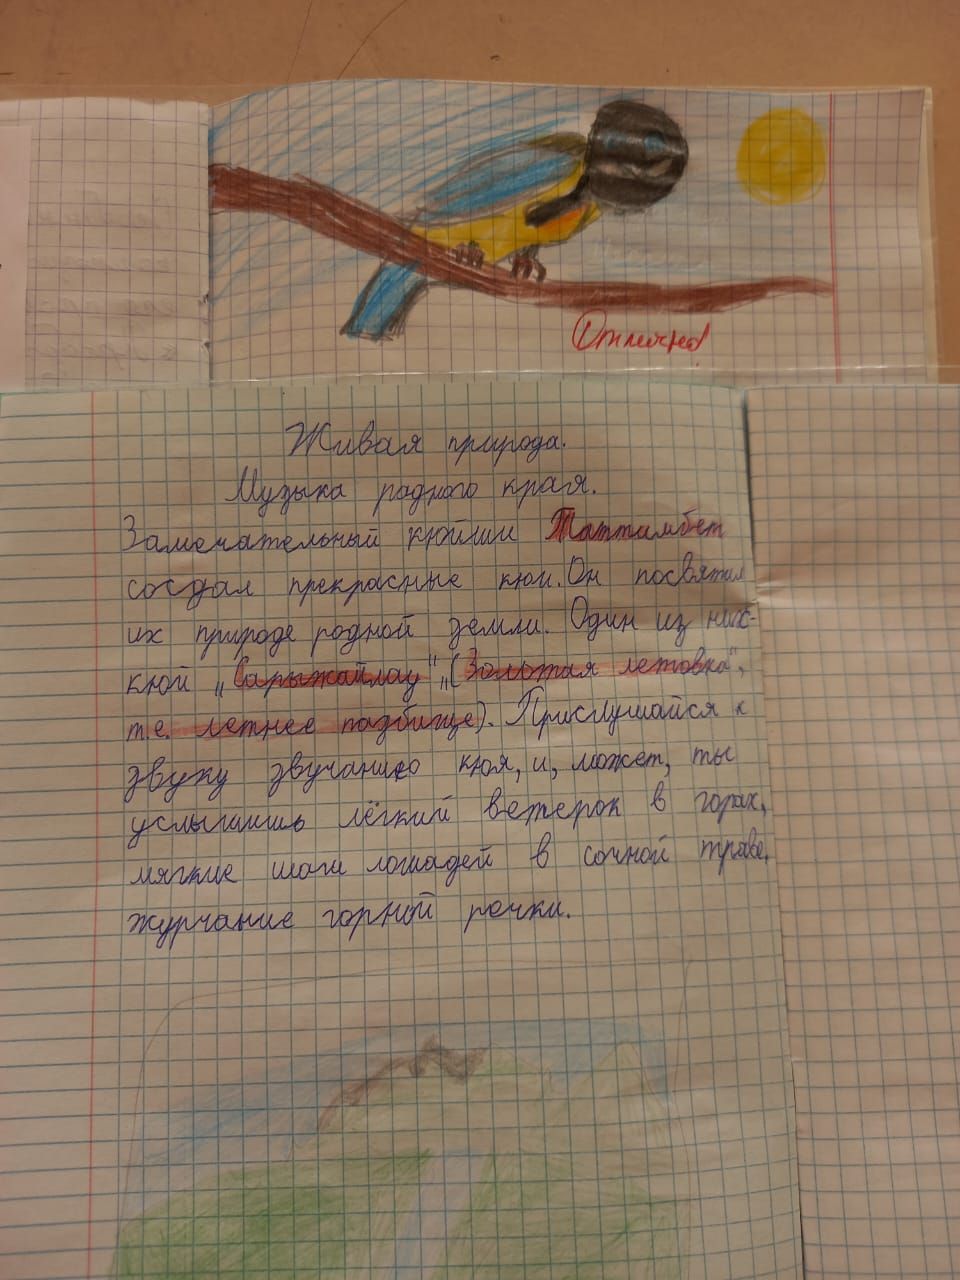 Отлично!
Живая природа.
Музыка родного края.
Замечательный кюйши Таттимбет
создал прекрасные кюи. Он посвятил
их природе родной земли. Один из них-
кюй „Сарыжайлау" „(Золотая летовка",
т.е. летнее пазбище). Прислушайся к
звуку звучанию кюя, и, может, ты
услышишь лёгкий ветерок в горах,
мягкие шаги лошадей в сочной траве,
журчание горной речки.